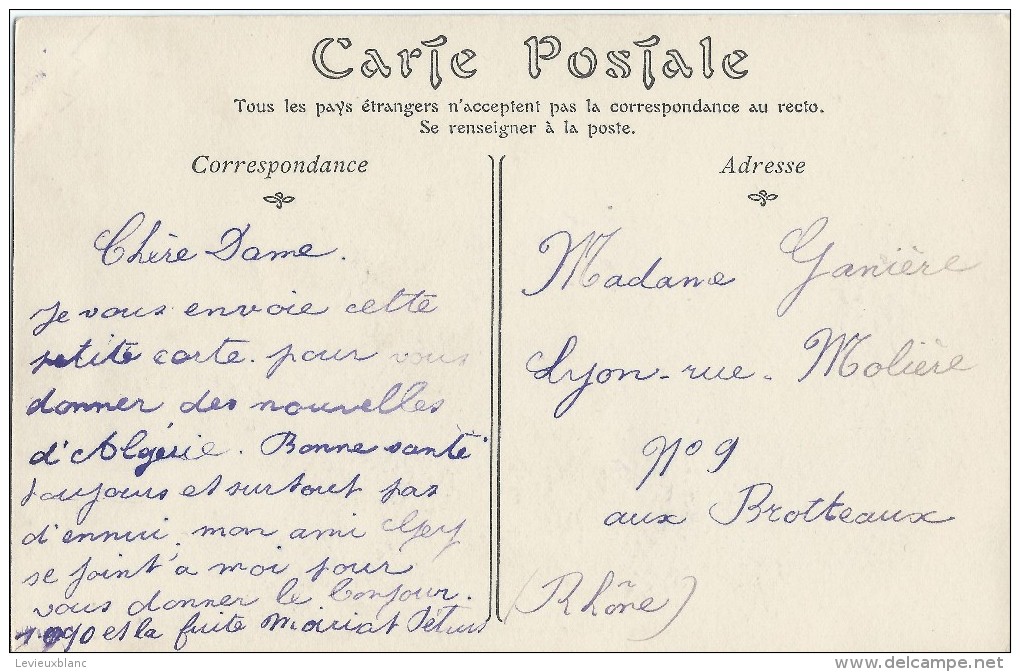 Carte Postale
Tous les pays étrangers n'acceptent pas la correspondance au recto.
Se renseigner à la poste.
Correspondance
Chère Dame.
Je vous envoie cette
petite carte. pour vous
donner des nouvelles
d'Algérie. Bonne santé
toujours et surtout pas
d'ennui, mon ami
se joint à moi pour
vous donner le bonjour.
et la fuite Mariat Pétrus
Adresse
Madame Ganière
Lyon-rue-Molière
N° 9
aux Brotteaux
(Rhône)
Levieuxblanc
www.delcampe.net